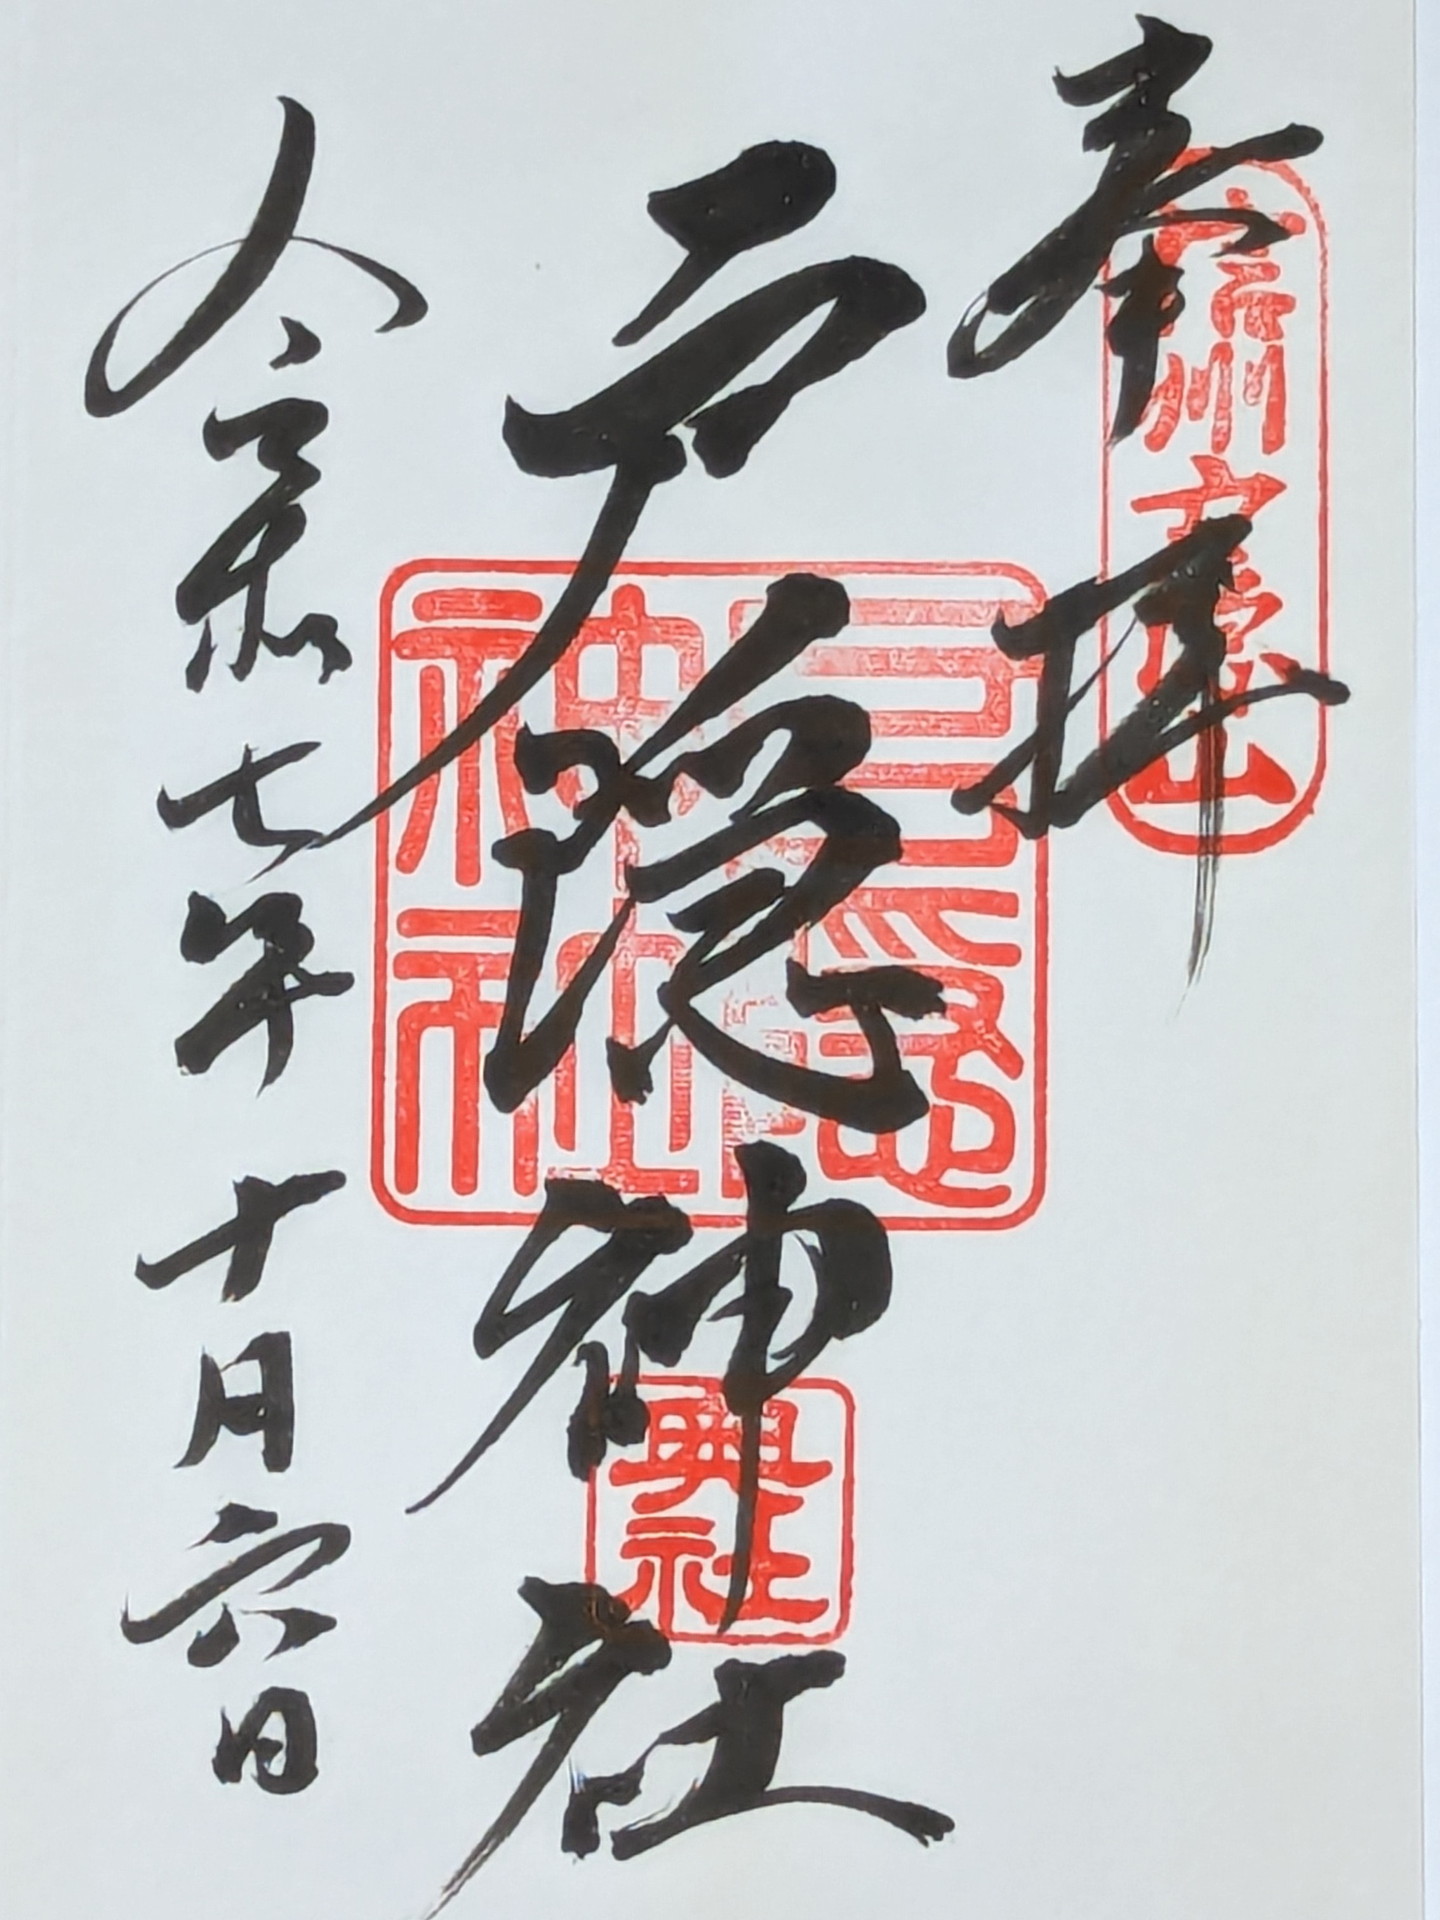 奉拝
信州戸隠山
戸隠神社
戸隠神社
奥社
令和七年十月六日